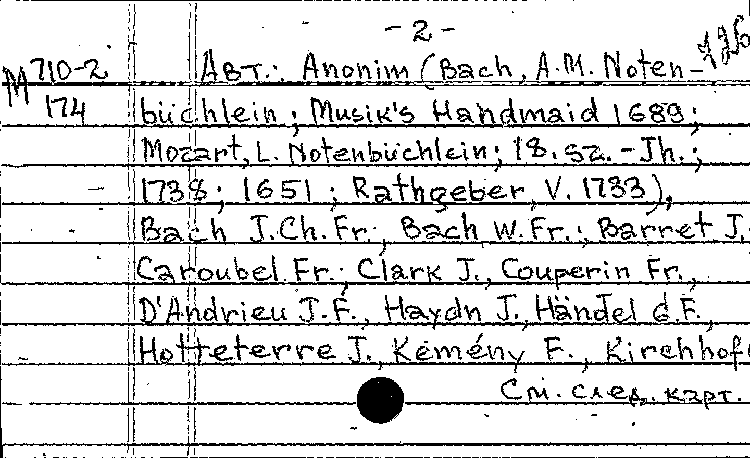 - 2 -
726
M 710-2 Авт.: Anonim (Bach, A.M. Noten-
174 büchlein; Musik's Handmaid 1689;
Mozart, L. Notenbüchlein; 18. sz. - Jh.;
1738; 1651; Rathgeber, V. 1733),
Bach J.Ch.Fr., Bach W.Fr.; Barret J.
Caroubel Fr.; Clark J., Couperin Fr.,
D'Andrieu J.F., Haydn J., Händel G.F.,
Hotteterre J., Kemény E., Kirchhof
См. след. карт.